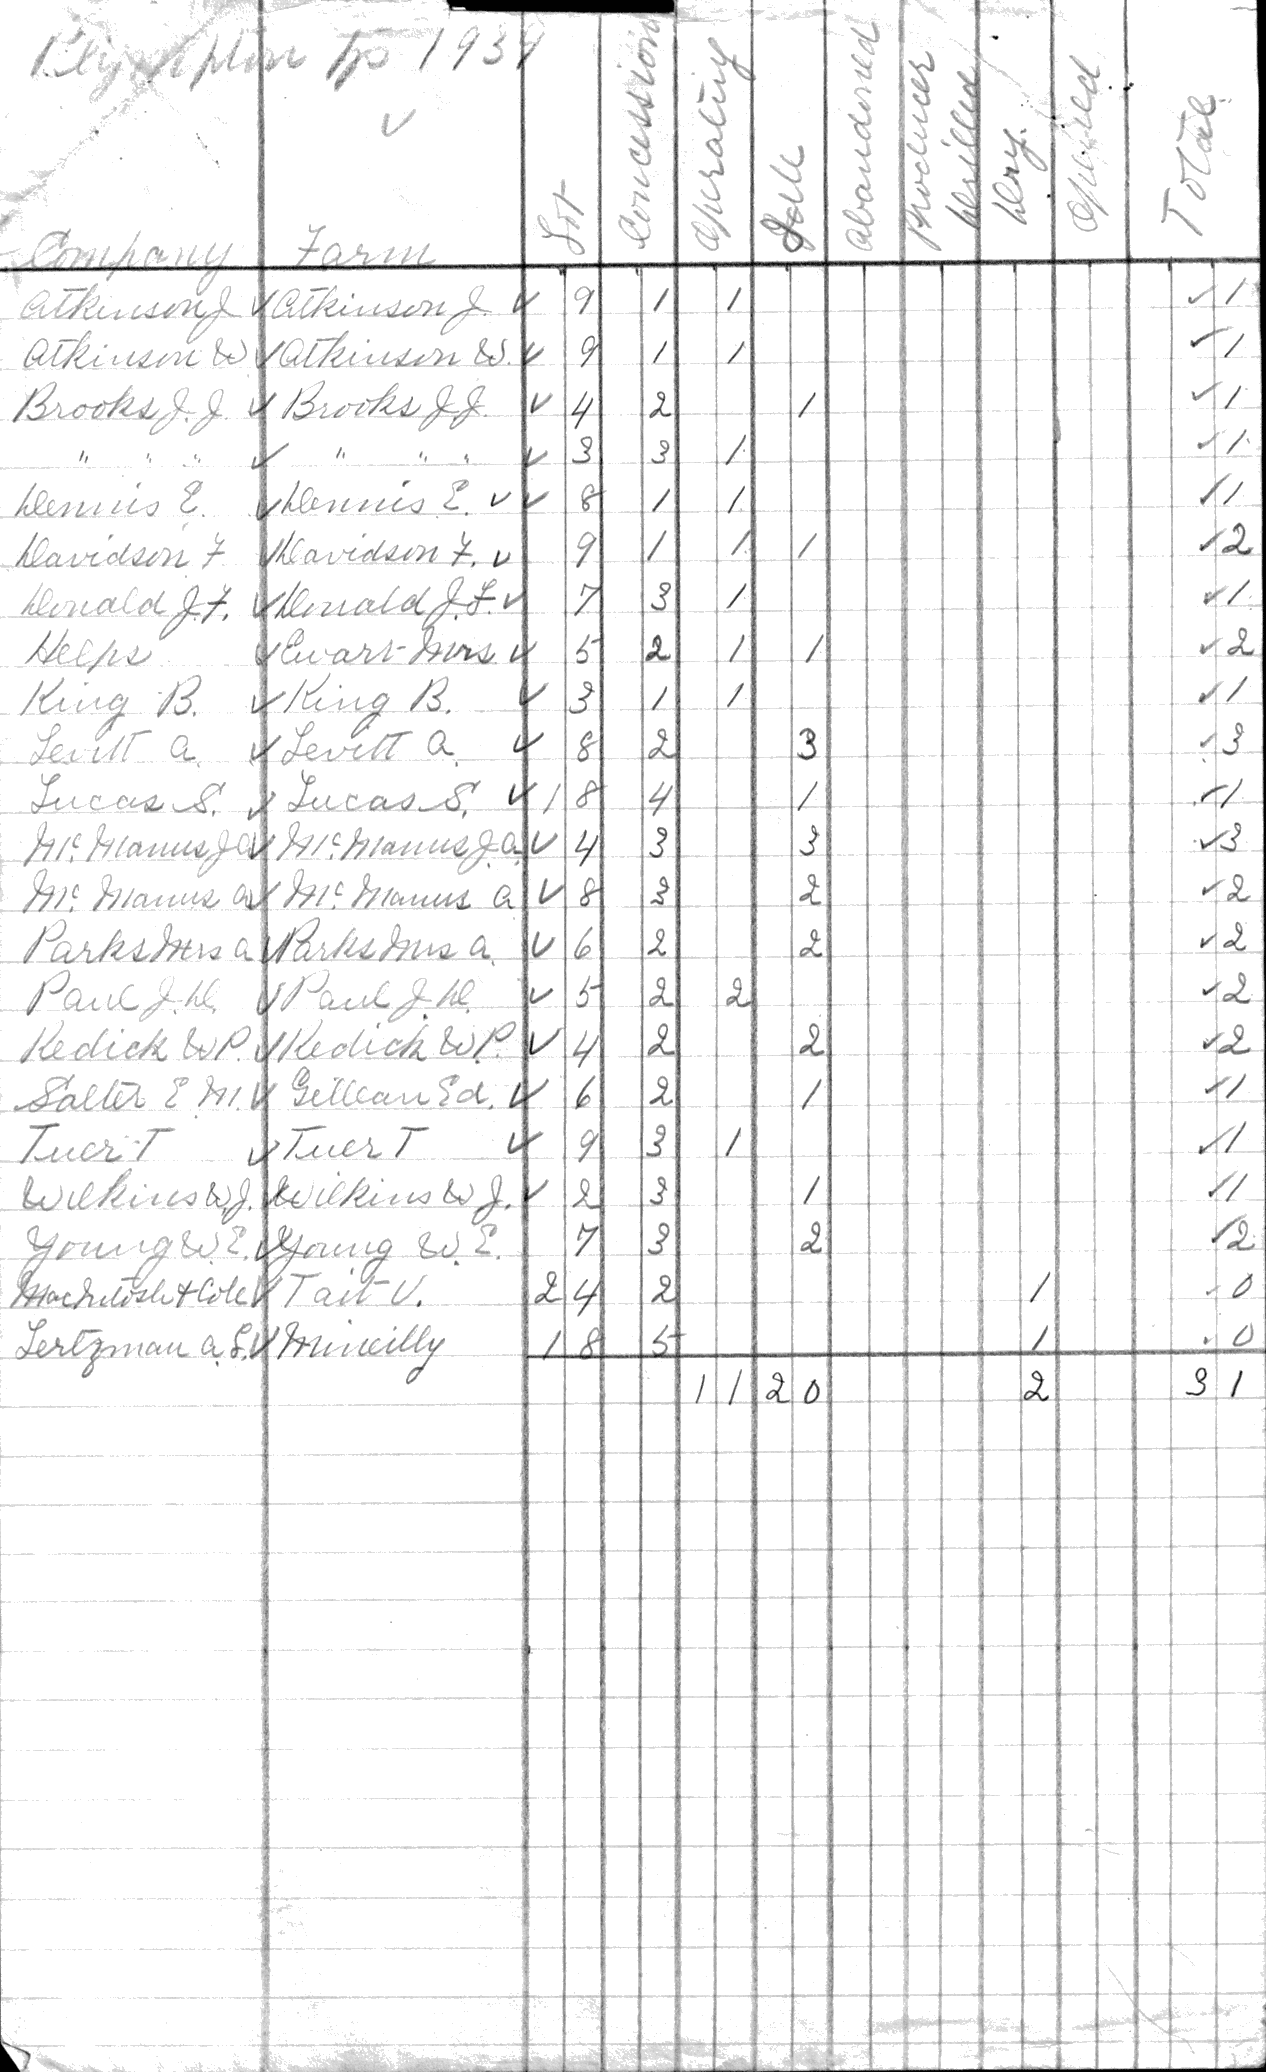 Plympton Tp 1939
✓
Company Farm Lot Concession Operating Idle Abandoned Producer Drilled Dry. Opened Total
Atkinson J ✓ Atkinson J. ✓ 9 1 1 ✓ 1
Atkinson W ✓ Atkinson W. ✓ 9 1 1 ✓ 1
Brooks J. J ✓ Brooks J J. ✓ 4 2 1 ✓ 1
" " " ✓ " " " ✓ 3 3 1 ✓ 1
Dennis E. ✓ Dennis E. ✓ ✓ 8 1 1 ✓ 1
Davidson F ✓ Davidson F. ✓ 9 1 1 1 ✓ 2
Donald J. F. ✓ Donald J. F. ✓ 7 3 1 ✓ 1
Helps ✓ Ewart Mrs ✓ 5 2 1 1 ✓ 2
King B. ✓ King B. ✓ 3 1 1 ✓ 1
Levitt A. ✓ Levitt A. ✓ 8 2 3 ✓ 3
Lucas S. ✓ Lucas S. ✓ 18 4 1 ✓ 1
Mc Manus J A ✓ Mc Manus J. A. ✓ 4 3 3 ✓ 3
Mc Manus A ✓ Mc Manus A ✓ 8 3 2 ✓ 2
Parks Mrs A ✓ Parks Mrs A. ✓ 6 2 2 ✓ 2
Paul J. D. ✓ Paul J. D. ✓ 5 2 2 ✓ 2
Redick W P. ✓ Redick W. P. ✓ 4 2 2 ✓ 2
Salter E. M. ✓ Gillean Ed. ✓ 6 2 1 ✓ 1
Tuer T ✓ Tuer T ✓ 9 3 1 ✓ 1
Wilkins W. J. ✓ Wilkins W J. ✓ 2 3 1 ✓ 1
Young W. E. ✓ Young W. E. 7 3 2 ✓ 2
MacIntosh & Cole ✓ Tait V. 24 2 1 ✓ 0
Lertzman A. S. ✓ 18 5 1 ✓ 0
11 20 2 31